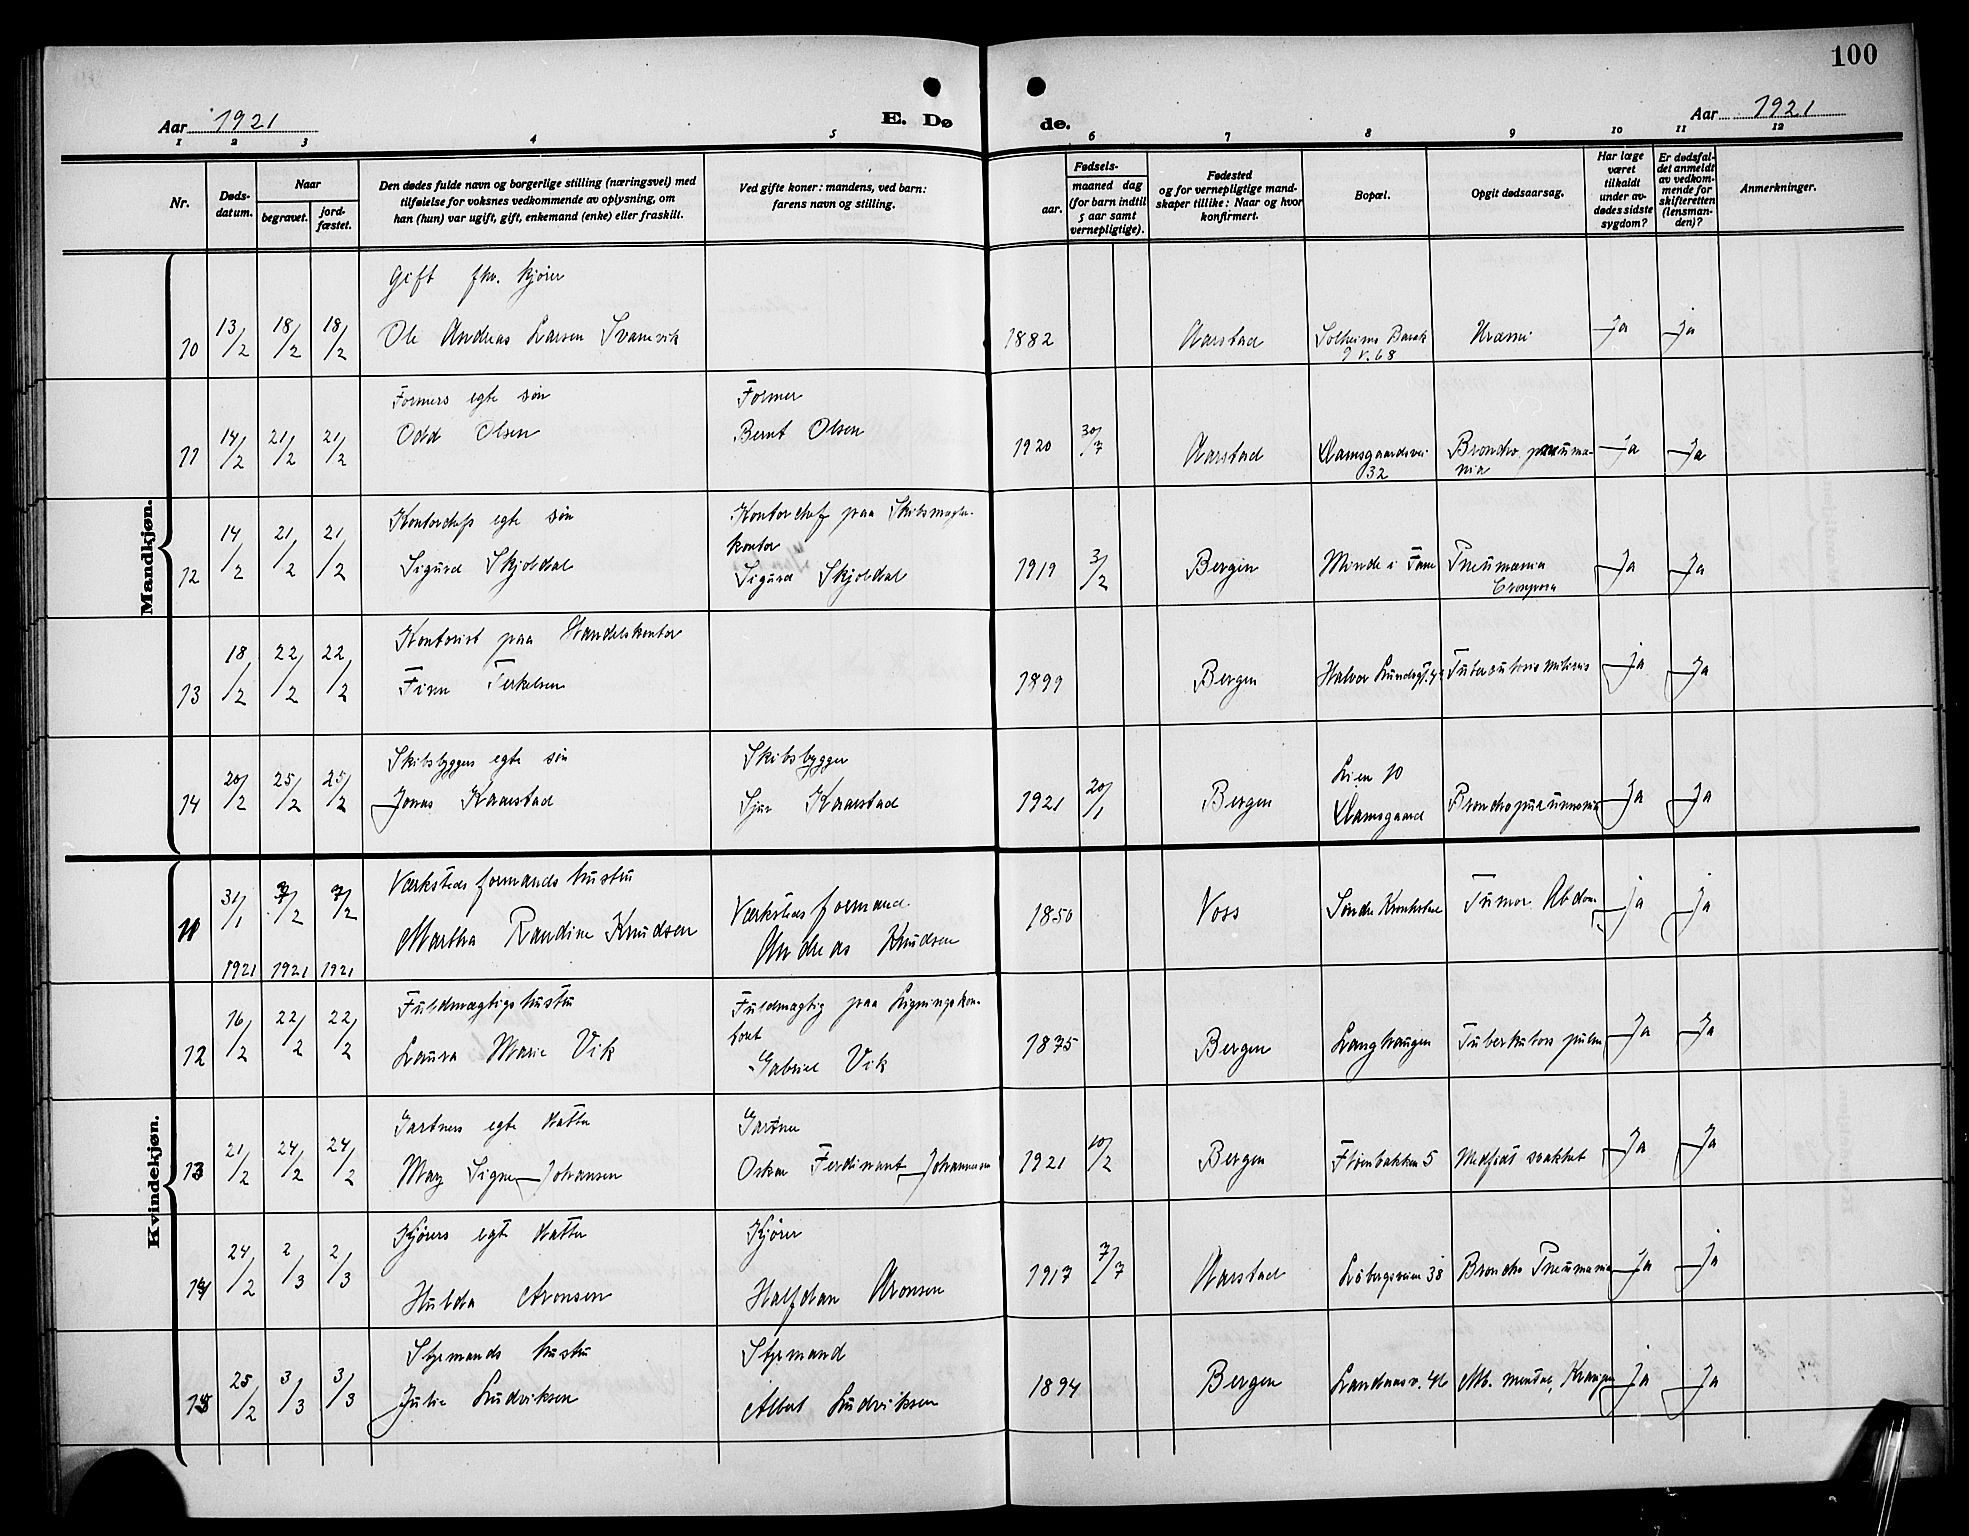 100
Aar 1921
E. Dø
de.
Aar 1921
1 2 3 4 5 6 7 8 9 10 11 12
Nr.
Døds-
datum.
Naar
begravet.
jord-
fæstet.
Den dødes fulde navn og borgerlige stilling (næringsvei) med
tilføielse for voksnes vedkommende av oplysning, om
han (hun) var ugift, gift, enkemand (enke) eller fraskilt.
Ved gifte koner: mandens, ved barn:
farens navn og stilling.
Fødsels-
aar.
maaned dag
(for barn indtil
5 aar samt
vernepligtige).
Fødested
og for vernepligtige mand-
skaper tillike: Naar og hvor
konfirmert.
Bopæl.
Opgit dødsaarsag.
Har læge
været
tilkaldt
under av-
dødes sidste
sygdom?
Er dødsfal-
det anmeldt
av vedkom-
mende for
skifteretten
(lensman-
den)?
Anmerkninger.
Mandkjøn.
Gift fhv. kjører
10 13/2 18/2 18/2 Ole Andreas Larsen Svanevik 1882 Aarstad Solheims Barak Uræmi ja ja
9 v. 68
Formers egte søn Former
11 14/2 21/2 21/2 Odd Olsen Bernt Olsen 1920 30/7 Aarstad Damsgaardsvei Broncho. pneumo- Ja Ja
32 nia
Kontorchefs egte søn Kontorchef paa Skibsmægler-
kontor
12 14/2 21/2 21/2 Sigurd Skjoldal Sigurd Skjoldal 1919 3/2 Bergen Minde i Fane Pneumonia Ja Ja
Crouposa
Kontorist paa Handelskontor
13 18/2 22/2 22/2 Finn Terkelsen 1899 Bergen Halvor Lundsgt. Tuberculosis miliaris Ja Ja
Skibsbyggers egte søn Skibsbygger Lien 10
14 20/2 25/2 25/2 Jonas Kaarstad Sjur Kaarstad 1921 20/1 Bergen Damsgaard Bronchopneumonia Ja Ja
Kvindekjøn.
Værksteds formands hustru Værksteds formand
11 31/1 7/2 7/2 Martha Randine Knudsen Andreas Knudsen 1850 Voss Søndre Tumor Abdom ja ja
1921 1921 1921
Fuldmægtigs hustru Fuldmægtig paa Ligningskon-
toret
12 16/2 22/2 22/2 Laura Marie Vik Gabriel Vik 1875 Bergen Langhaugen Tuberkulosis pulm Ja Ja
Gartners egte datter Gartner
13 21/2 24/2 24/2 Mary Signe Johansen Oskar Ferdinant Johannesen 1921 10/2 Bergen Fløenbakken 5 Medfødt svakhet Ja Ja
Kjørers egte datter Kjører
14 24/2 2/3 2/3 Hulda Aronsen Halfdan Aronsen 1917 7/7 Aarstad Løbergsveien 38 Broncho Pneumonia Ja Ja
Styrmands hustru Styrmand
15 25/2 3/3 3/3 Julie Ludviksen Albert Ludviksen 1894 Bergen Landaasv. 46 Mb. Ja Ja